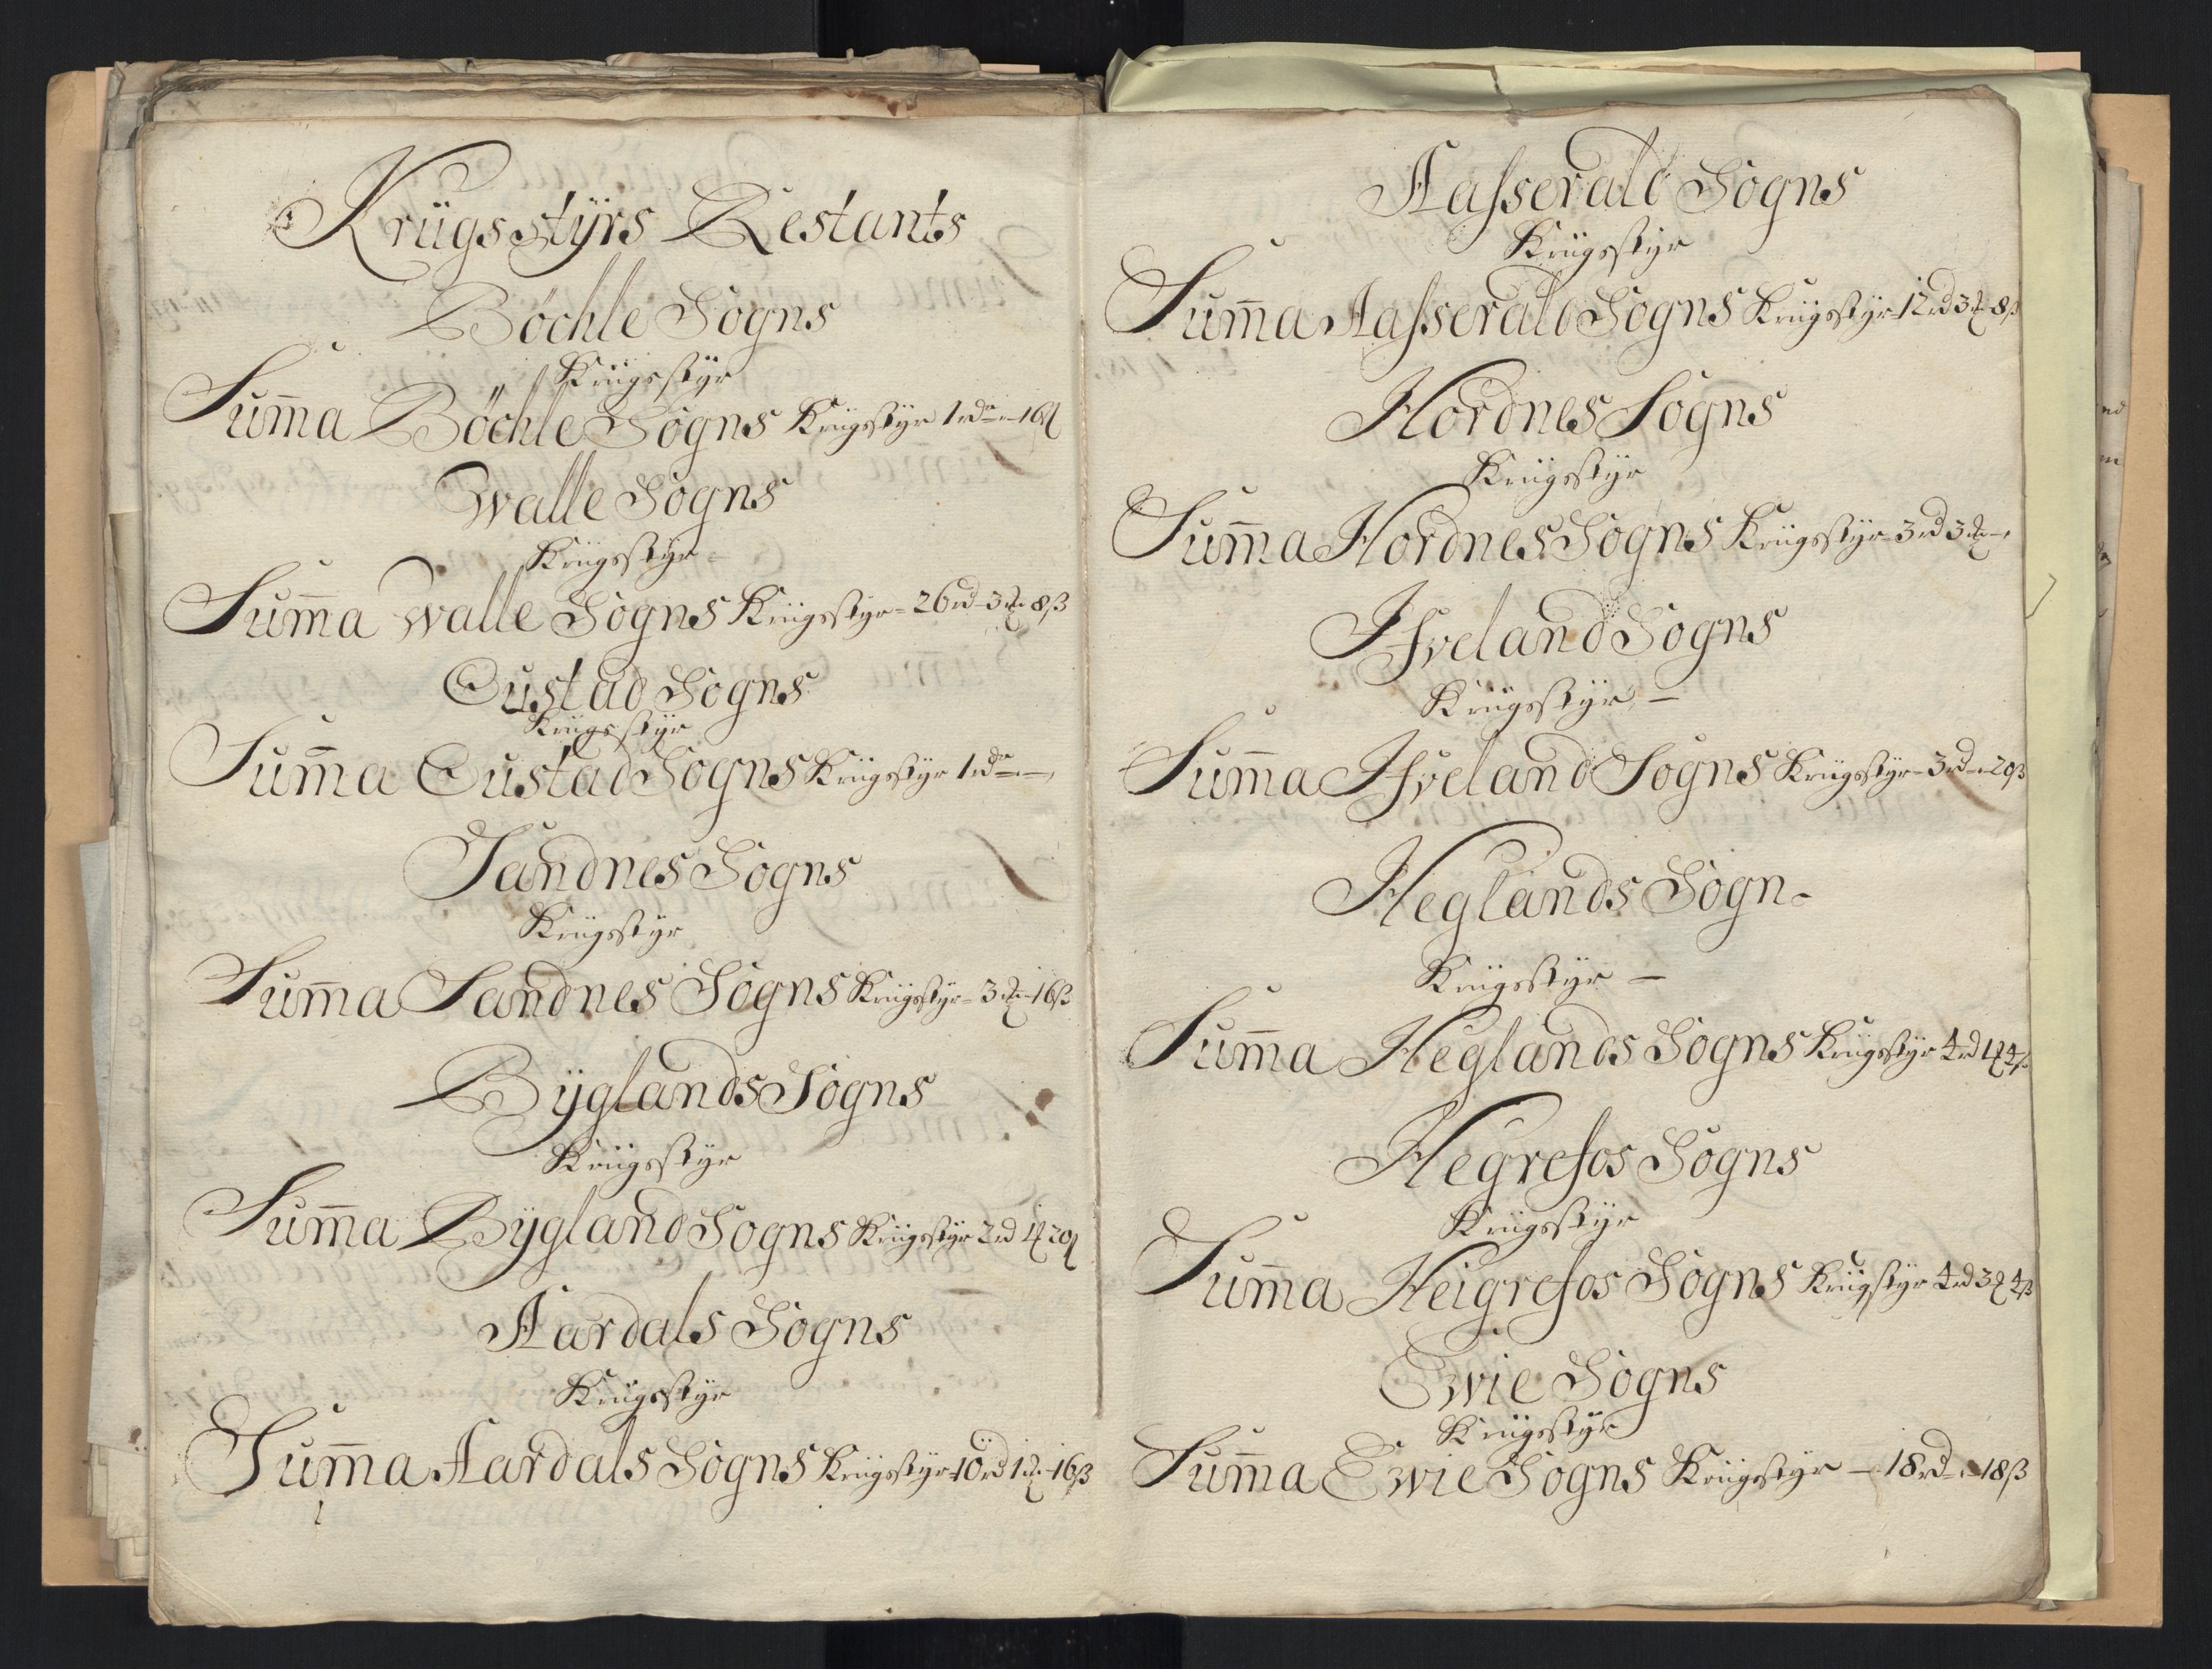 Krügsstÿrs Restants
Böchle Sogns
Krügsstÿr
Sum̄a Böchle Sogns Krügsstÿr 1 rdr - 16 ß
Walle Sogns
Krügsstÿr
Sum̄a Walle Sogns Krügsstÿr 26 rd - 3 ꝗ 8 ß
Oustad Sogns
Krügsstÿr
Sum̄a Oustad Sogns Krügsstÿr 1 rdr - -
Sandnes Sogns
Krügsstÿr
Sum̄a Sandnes Sogns Krügsstÿr - 3 ꝗ - 16 ß
Bÿglands Sogns
Krügsstÿr
Sum̄a Bÿgland Sogns Krügsstÿr 2 rd 1 ꝗ 20 ß
Aardals Sogns
Krügsstÿr
Sum̄a Aardals Sogns Krügsstÿr 10 rd 1 ꝗ - 16 ß
Aasserald Sogns
Krügsstÿr
Sum̄a Aasserald Sogns Krügsstÿr 12 rd 3 ꝗ - 8 ß
Hordnes Sogns
Krügsstÿr
Sum̄a Hordnes Sogns Krügsstÿr - 3 rd 3 ꝗ -
Ifveland Sogns
Krügsstÿr -
Sum̄a Ifveland Sogns Krügsstÿr - 3 rd - 20 ß
Heglands Sogn
Krügsstÿr -
Sum̄a Heglands Sogns Krügsstÿr 4 rd 1 ꝗ 4 ß
Hegrefos Sogns
Krügsstÿr
Sum̄a Heigrefos Sogns Krügstÿr 4 rd 3 ꝗ 4 ß
Ewie Sogns
Krügsstÿr
Sum̄a Ewie Sogns Krügsstÿr - 18 rd - 18 ß